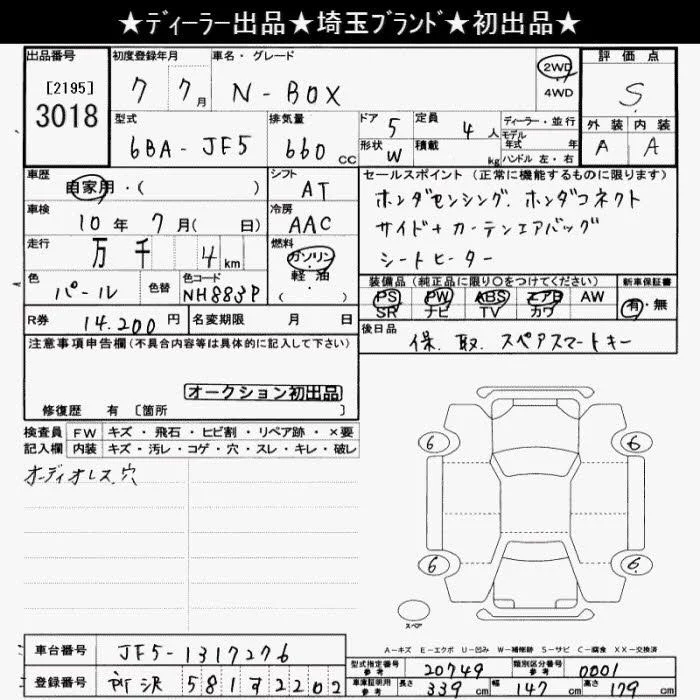 ★ディーラー出品★埼玉ブランド★初出品★
出品番号 初度登録年月 車名・グレード 評価点
[2195] 7 7月 N-BOX 2WD S
3018 4WD
型式 排気量 ドア 5 定員 4人 ディーラー・並行 外装 内装
6BA-JF5 660cc 形状 W 積載 kg モデル年式 年 A A
ハンドル 左・右
車歴 シフト セールスポイント(正常に機能するものに限ります)
自家用・( ) AT ホンダセンシング. ホンダコネクト
車検 冷房 サイド+カーテンエアバッグ
10年 7月( 日) AAC シートヒーター
走行 燃料
万 千 4km ガソリン
軽油
( )
色 色替 色コード 装備品(純正品に限り○をつけてください) 新車保証書
パール NH883P PS PW ABS エアB AW 有・無
SR ナビ TV カワ
R券 14.200円 名変期限 月 日 後日品
保. 取. スペアスマートキー
注意事項申告欄(不具合内容等は具体的に記入して下さい)
オークション初出品
修復歴 有 [箇所 ]
検査員 FW キズ・飛石・ヒビ割・リペア跡・×要
記入欄 内装 キズ・汚レ・コゲ・穴・スレ・キレ・破レ
オーディオレス穴
6 6
6 6
スペア
A-キズ E-エクボ U-凹み W-補修跡 S-サビ C-腐食 XX-交換済
車台番号 JF5-1317276
登録番号 所沢 581す2202
型式指定番号 参考 20749 類別区分番号 参考 0001
車庫証明用 参考 長さ 339cm 幅 147cm 高さ 179cm